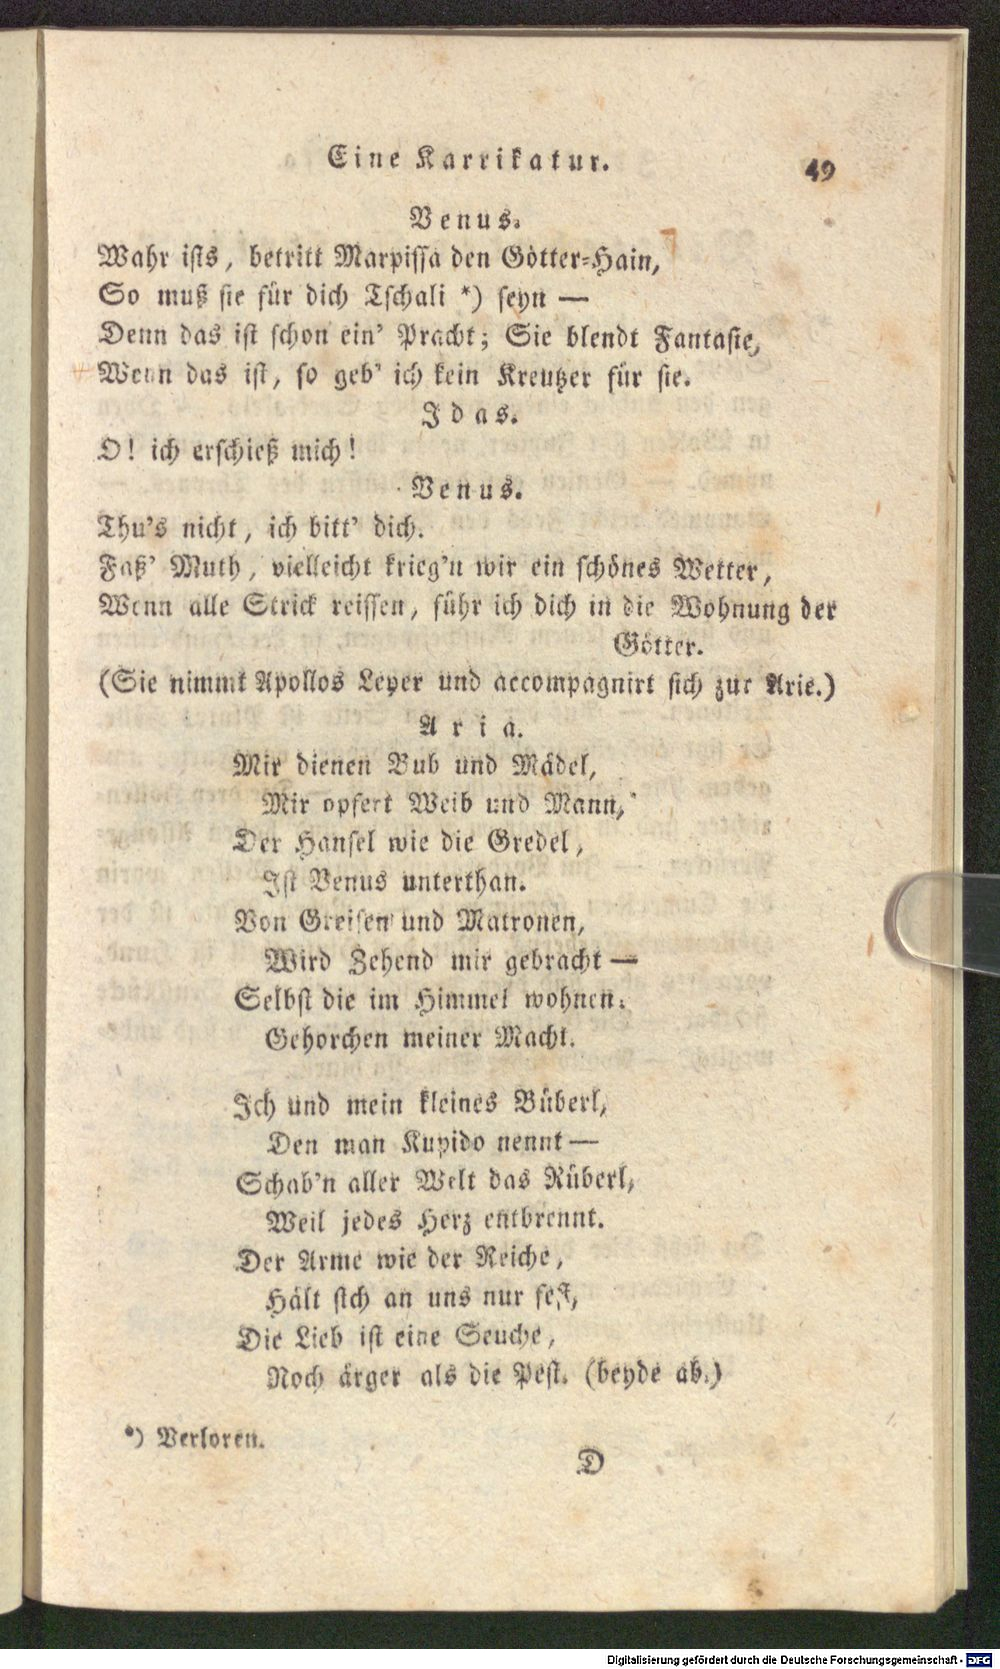 Eine Karrikatur. 49
Venus.
Wahr ists, betritt Marpissa den Götter-Hain,
So muß sie für dich Tschali *) seyn —
Denn das ist schon ein' Pracht; Sie blendt Fantasie,
Wenn das ist, so geb' ich kein Kreutzer für sie.
Idas.
O! ich erschieß mich!
Venus.
Thu's nicht, ich bitt' dich.
Faß' Muth, vielleicht krieg'n wir ein schönes Wetter,
Wenn alle Strick reissen, führ ich dich in die Wohnung der
Götter.
(Sie nimmt Apollos Leyer und accompagnirt sich zur Arie.)
Aria.
Mir dienen Bub und Mädel,
Mir opfert Weib und Mann,
Der Hansel wie die Gredel,
Ist Venus unterthan.
Von Greisen und Matronen,
Wird Zehend mir gebracht —
Selbst die im Himmel wohnen,
Gehorchen meiner Macht.
Ich und mein kleines Büberl,
Den man Kupido nennt —
Schab'n aller Welt das Rüberl,
Weil jedes Herz entbrennt.
Der Arme wie der Reiche,
Hält sich an uns nur fest,
Die Lieb ist eine Seuche,
Noch ärger als die Pest. (beyde ab.)
*) Verloren.
D
Digitalisierung gefördert durch die Deutsche Forschungsgemeinschaft - DFG